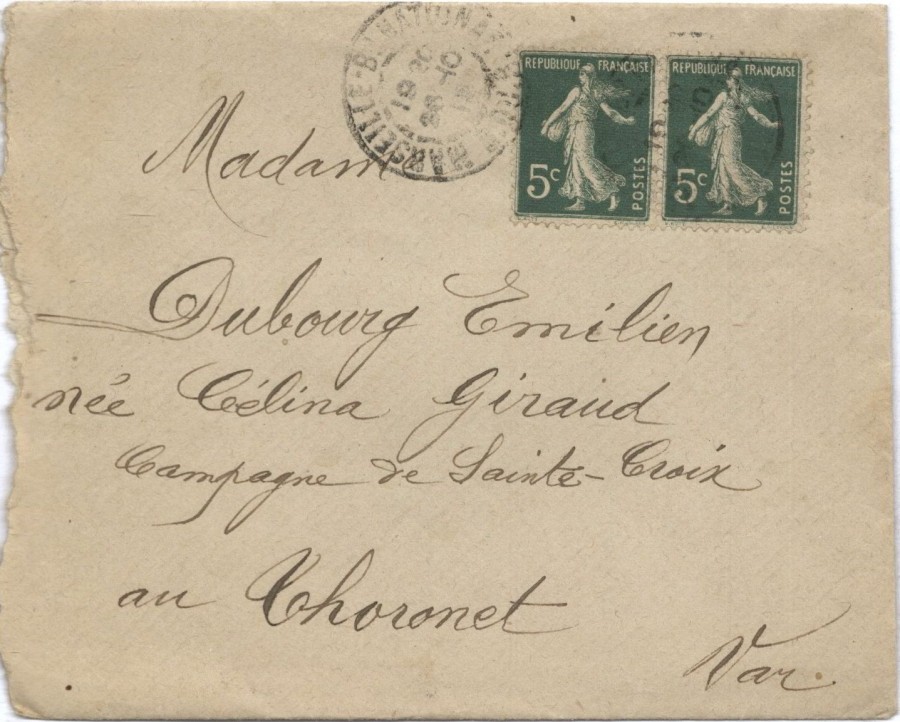 MARSEILLE-Bd NATIONAL
RÉPUBLIQUE FRANÇAISE
5c
POSTES
RÉPUBLIQUE FRANÇAISE
5c
POSTES
Madam
Dubourg Emilien
née Célina Giraud
Campagne de Sainte-Croix
au Thoronet
Var.